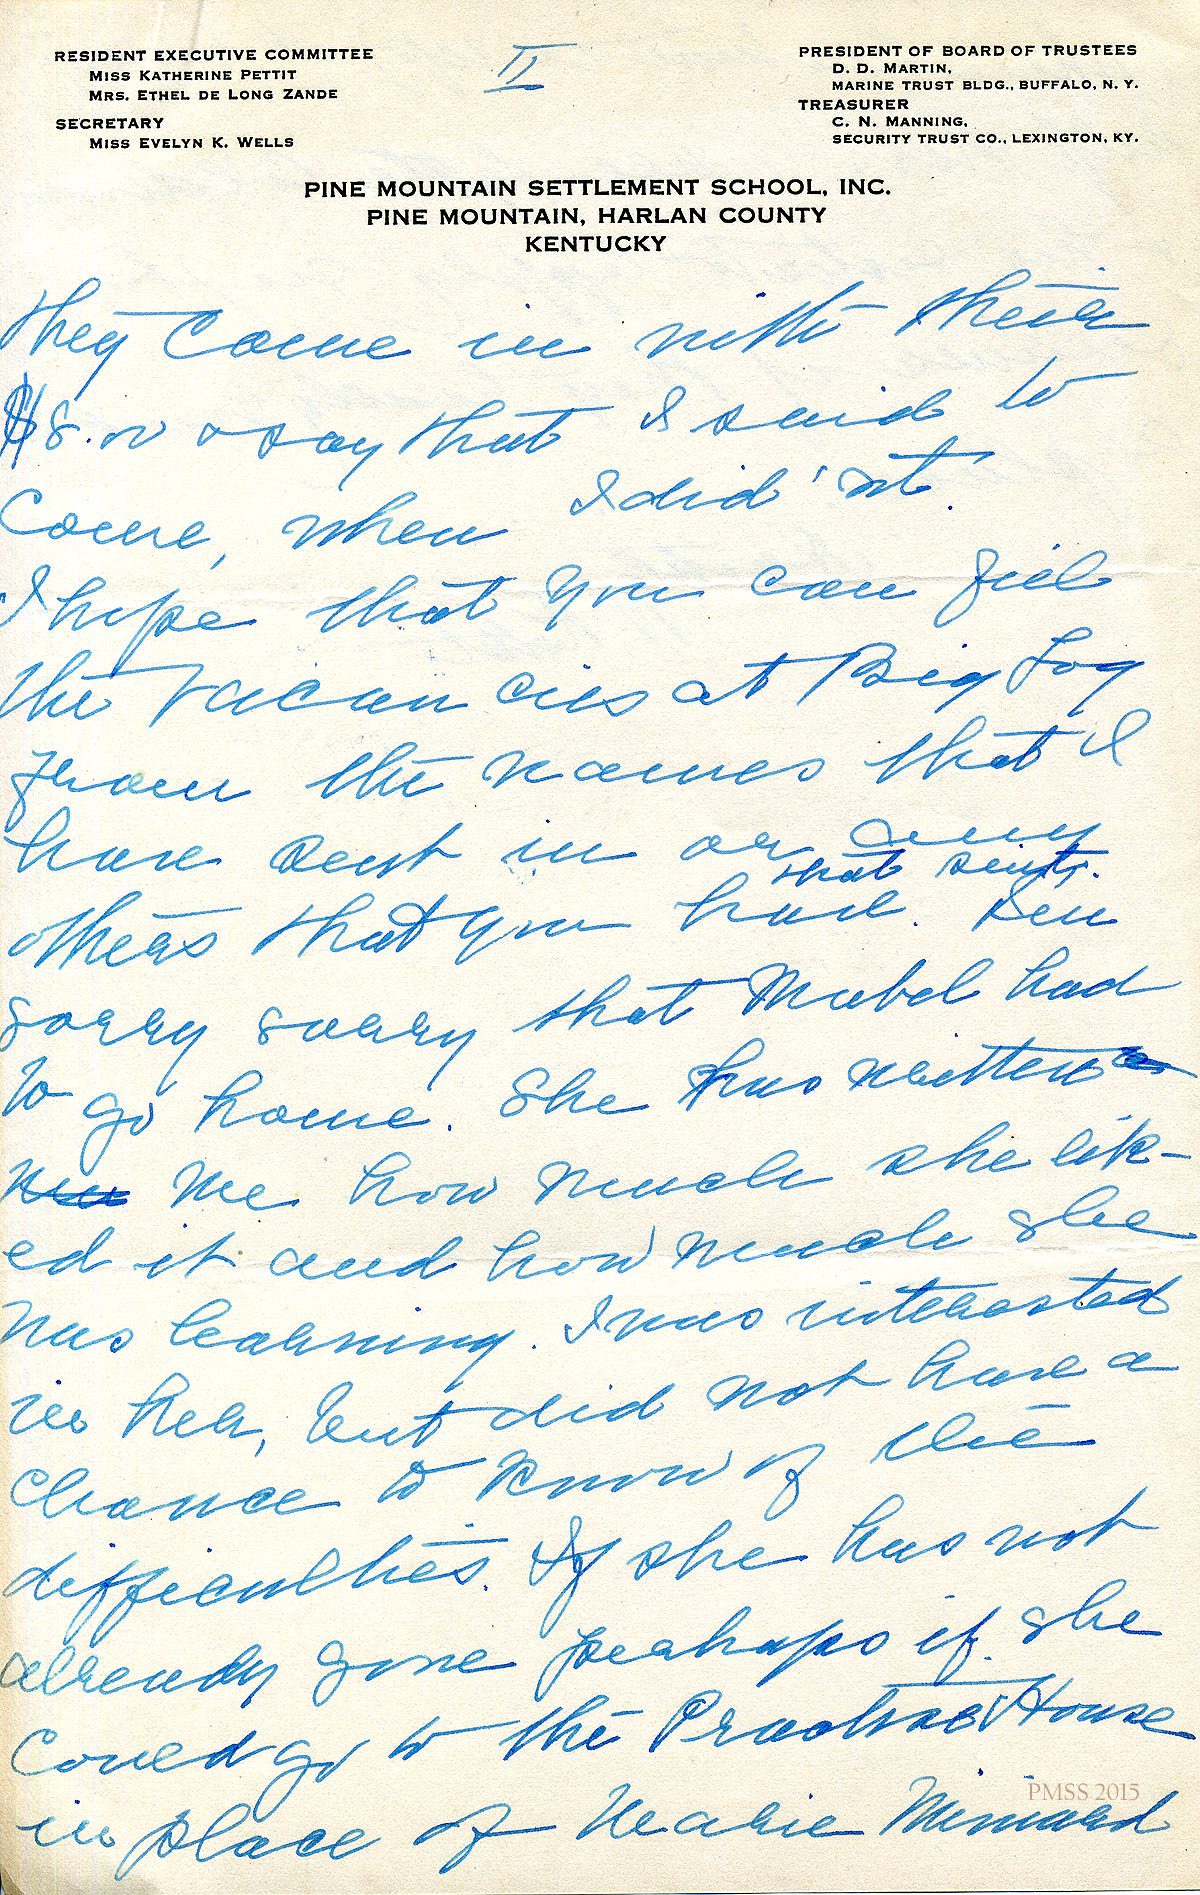 RESIDENT EXECUTIVE COMMITTEE
MISS KATHERINE PETTIT
MRS. ETHEL DE LONG ZANDE
SECRETARY
MISS EVELYN K. WELLS
II
PRESIDENT OF BOARD OF TRUSTEES
D. D. MARTIN,
MARINE TRUST BLDG., BUFFALO, N. Y.
TREASURER
C. N. MANNING,
SECURITY TRUST CO., LEXINGTON, KY.
PINE MOUNTAIN SETTLEMENT SCHOOL, INC.
PINE MOUNTAIN, HARLAN COUNTY
KENTUCKY
they come in with their
say that I said to
come, when I did'nt.
I hope that you can fill
the vacancies at Big Log
from the names that I
have sent in or any
others that you have.
sorry sorry that Mabel had
to go home. She has written
me how much she lik-
ed it and how much she
was learning. I was interested
in her, but did not have a
chance to know of the
difficulties. If she has not
already gone perhaps if she
could go to the Practise House
in place of Marie Miniard
PMSS 2015